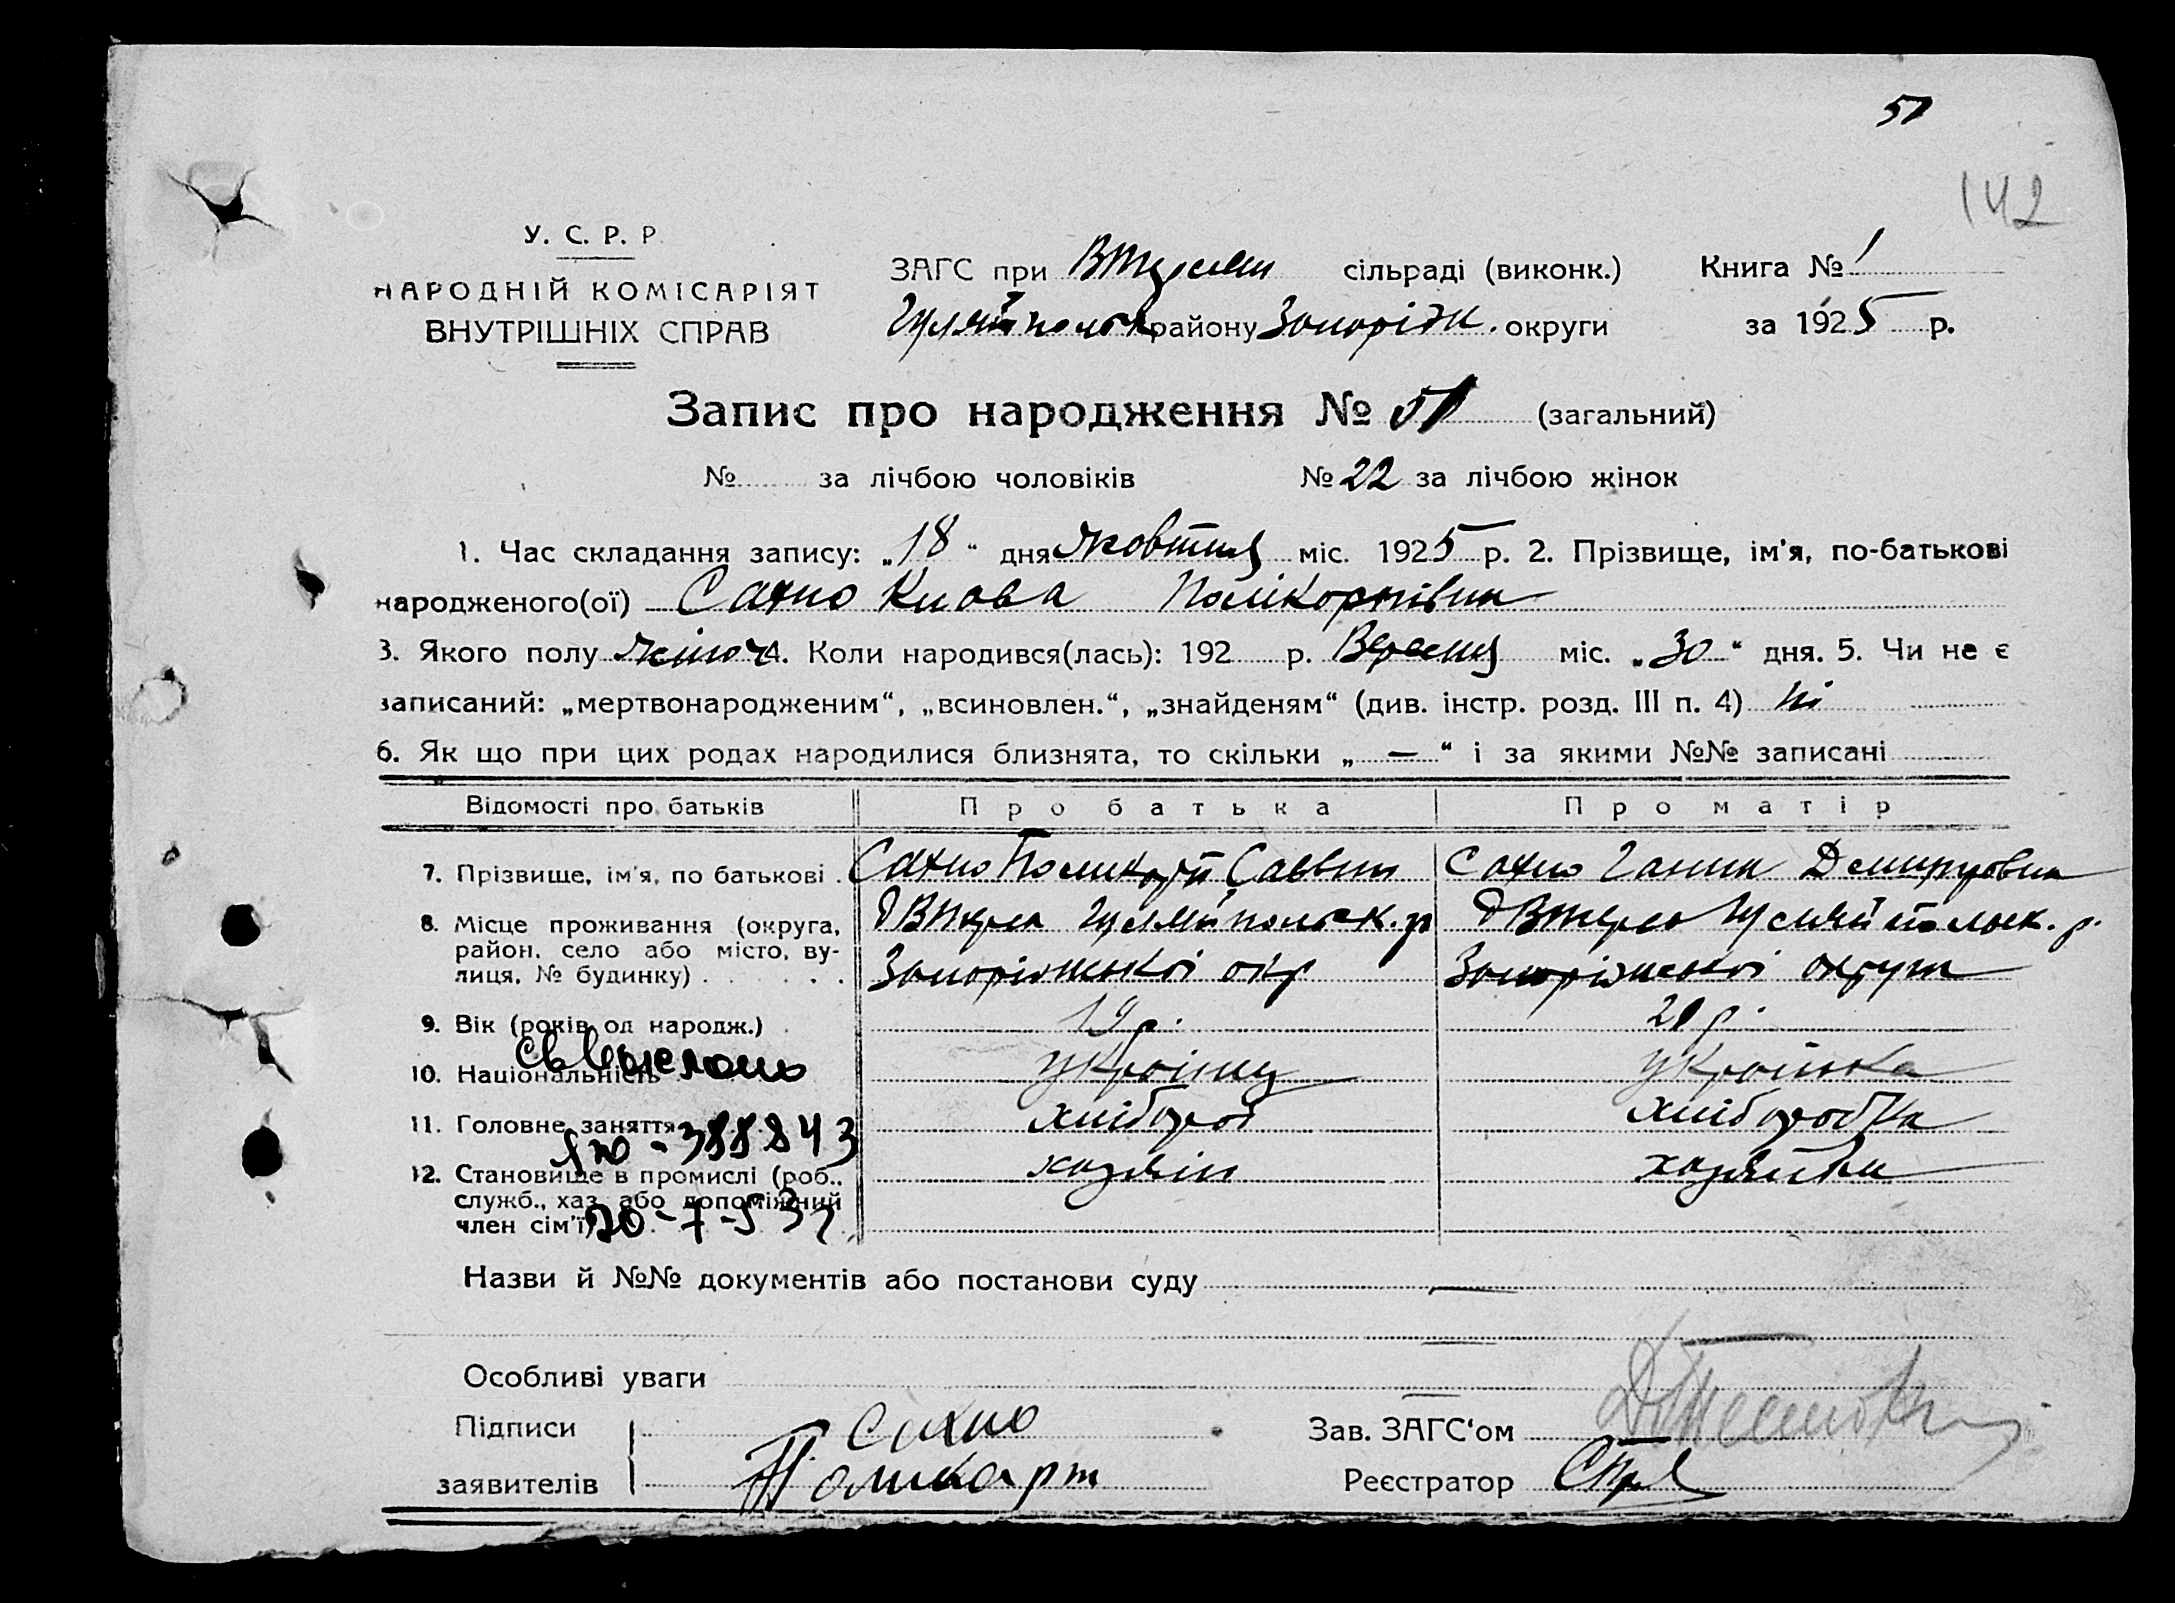 51
142
У. С. Р. Р.
НАРОДНІЙ КОМІСАРІЯТ
ВНУТРІШНІХ СПРАВ
ЗАГС при сільраді (виконк.) Книга № 1
Гуляйпольськ району Запоріжк. округи за 1925 р.
Запис про народження № 51 (загальний)
№ за лічбою чоловіків № 22 за лічбою жінок
1. Час складання запису: „18“ дня жовтня міс. 1925 р. 2. Прізвище, ім'я, по-батькові
народженого(ої) Сахно Полікарпівна
3. Якого полу жіноч 4. Коли народився(лась): 192 р. Вересня міс. „30“ дня. 5. Чи не є
записаний: „мертвонародженим“, „всиновлен.“, „знайденям“ (див. інстр. розд. III п. 4) ні
6. Як що при цих родах народилися близнята, то скільки „—“ і за якими №№ записані
Відомості про батьків Про батька Про матір
7. Прізвище, ім'я, по батькові . Сахно Поликарп Сахно Ганна
8. Місце проживання (округа, Гуляйпольськ. р Гуляйпольск. р.
район, село або місто, ву-
лиця, № будинку) . . . . . Запоріжської окр Запоріжської округи
9. Вік (років од народж.) 19 р. 20 р.
10. Національність українц українка
11. Головне заняття хлібороб хліборобка
ЯЮ - 388843
12. Становище в промислі (роб., хазяін хазяйка
служб., хаз. або допоміжний
член сім'ї) 20-7-53 г.
Назви й №№ документів або постанови суду —
Особливі уваги
Підписи Сахно Зав. ЗАГС‘ом
заявителів Поликарп Реєстратор